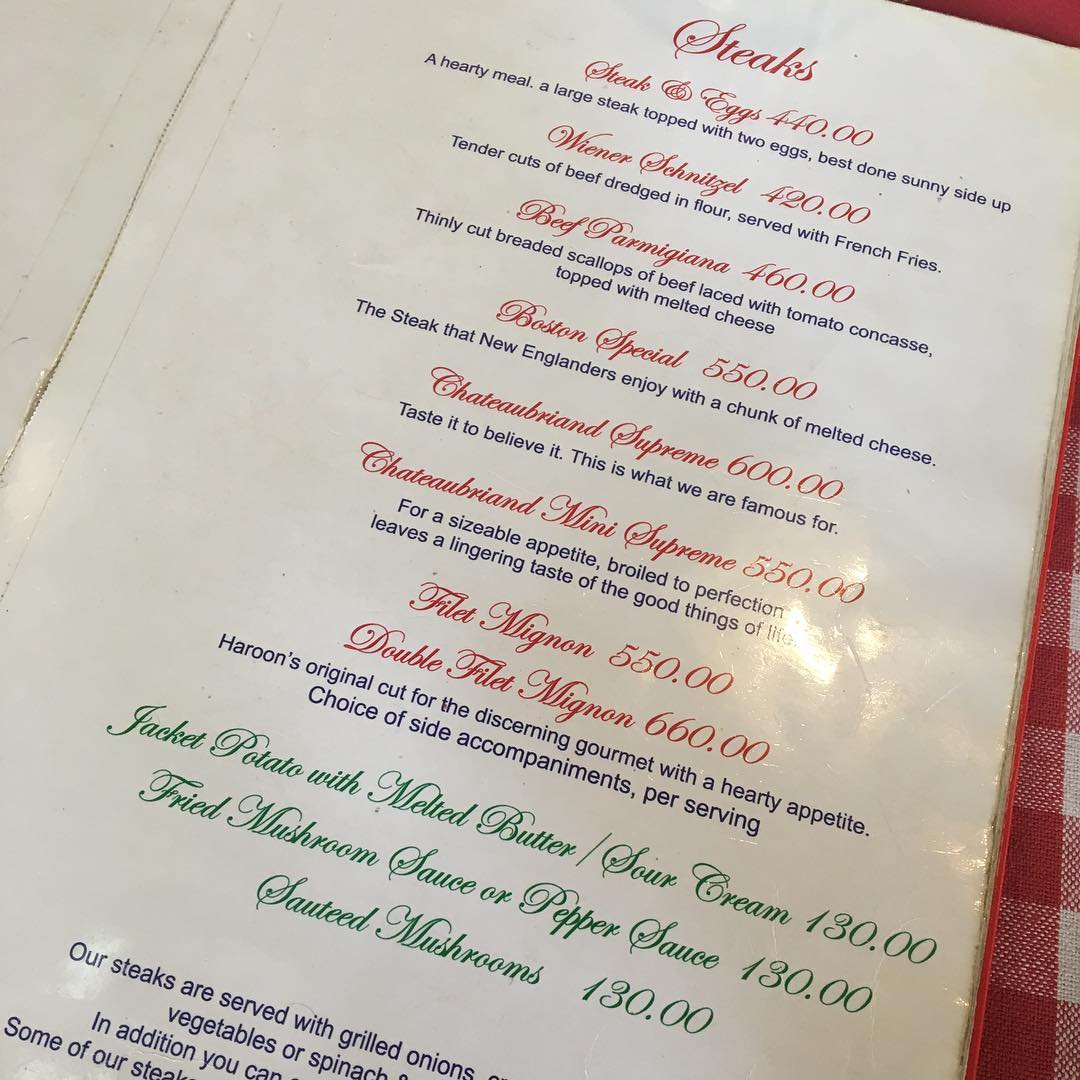 Steaks
Steak & Eggs 440.00
A hearty meal. a large steak topped with two eggs, best done sunny side up
Wiener Schnitzel 420.00
Tender cuts of beef dredged in flour, served with French Fries.
Beef Parmigiana 460.00
Thinly cut breaded scallops of beef laced with tomato concasse,
topped with melted cheese
Boston Special 550.00
The Steak that New Englanders enjoy with a chunk of melted cheese.
Chateaubriand Supreme 600.00
Taste it to believe it. This is what we are famous for.
Chateaubriand Mini Supreme 550.00
For a sizeable appetite, broiled to perfection
leaves a lingering taste of the good things of life
Filet Mignon 550.00
Double Filet Mignon 660.00
Haroon's original cut for the discerning gourmet with a hearty appetite.
Choice of side accompaniments, per serving
Jacket Potato with Melted Butter / Sour Cream 130.00
Fried Mushroom Sauce or Pepper Sauce 130.00
Sauteed Mushrooms 130.00
Our steaks are served with grilled onions,
vegetables or spinach
In addition you can
Some of our